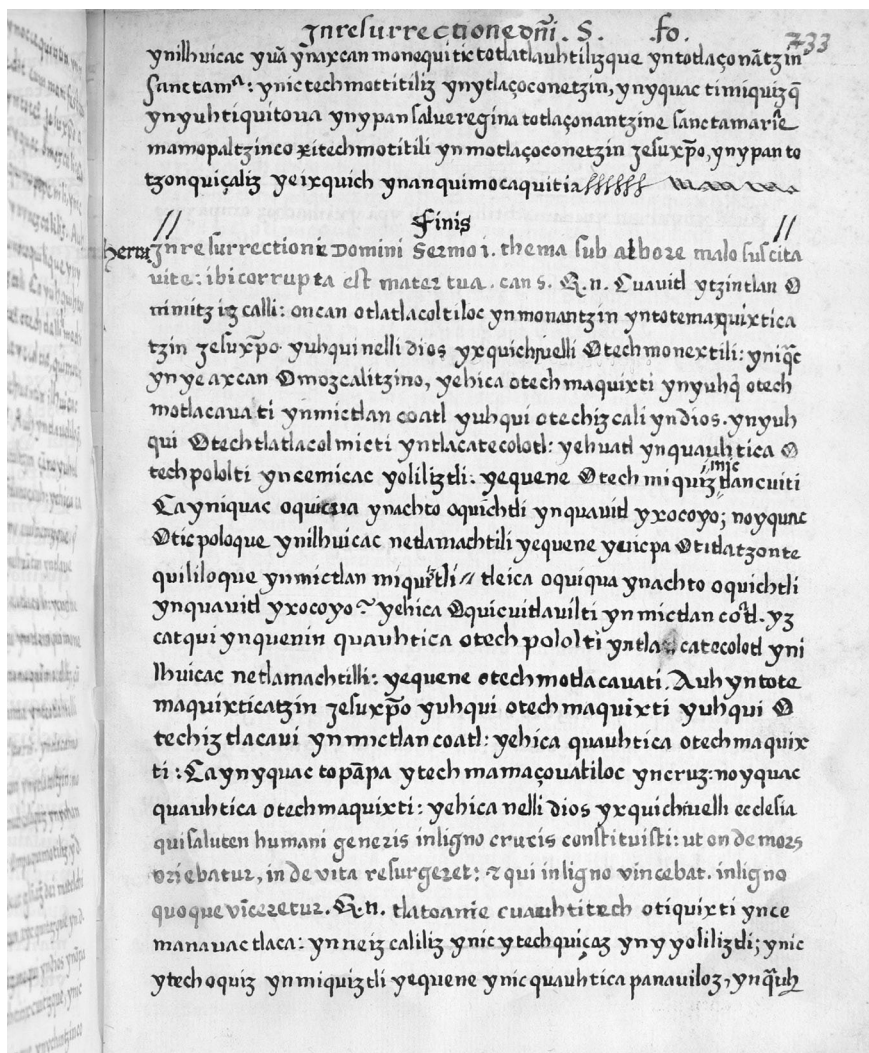 Jnresurrectione dñi . S . fo. 233
ynilhuicac yuã yñaxcan monequi tictotlatlauhtilizque yntotlaçonãtzin
sanctamᵃ: ynic techmottitiliz ynytlaçoconetzin, ynyquac timiquizq̃
ynyuhtiquitoua ynypan salueregina totlaçonantzine sanctamarie
mamopaltzinco xitechmotitili ynmotlaçoconetzin Jesuxp̃o, ynypan to
tzonquiçaliz yeixquich ynanquimocaquitia
Finis
Jnresurrectione Domini Sermo i. thema sub albore malo suscita
uite: ibi corrupta est mater tua. can 8. Q.n. Cuauitl ytzintlan O
nimitz iz calli: oncan otlatlacoltiloc ynmonantzin yntotemaquixtica
tzin Jesuxp̃o yuhqui nelli dios yxquichiuelli Otechmonextili: yniq̃c
ynyeaxcan Omozcalitzino, yehica otechmaquixti ynyuhq̃ otech
motlacaua ti ynmictlan coatl yuhqui otechizcali yndios. ynyuh
qui Otechtlatlacolmicti yntlacatecolotl: yehuatl ynquauhtica O
techpololti yncemicac yoliliztli: yequene Otech miquiz mic tlancuiti
Ca yniquac oquicua ynachto oquichtli ynquauitl yxocoyo; noyquac
Oticpoloque ynilhuicac netlamachtili yequene yeuicpa Otitlatzonte
quililoque ynmictlan miquiztli // tleica oquiqua ynachto oquichtli
ynquauitl yxocoyo? yehica Oquicuitlauilti ynmictlan coatl. yz
catqui ynquenin quauhtica otech pololti yntla catecolotl yni
lhuicac netlamachtilli: yequene otechmotlacauati. Auh yntote
maquixticatzin Jesuxp̃o yuhqui otechmaquixti yuhqui O
techiz tlacaui ynmictlan coatl: yehica quauhtica otechmaquix
ti: Ca ynyquac topãpa ytech mamaçouatiloc yncruz: noyquac
quauhtica otechmaquixti: yehica nelli dios yxquichiuelli ecclesia
qui saluten humani generis inligno crucis constituisti: ut onde mors
oriebatur, inde vita resurgeret: & qui inligno vincebat. inligno
quoque vĩceretur. Q.n. tlatoanie cuauhtitech otiquixti ynce
manauac tlaca: ynneiz caliliz ynic ytechquiçaz ynyyoliliztli; ynic
ytechoquiz ynmiquiztli yequene ynic quauhtica panauiloz, ynq̃uh